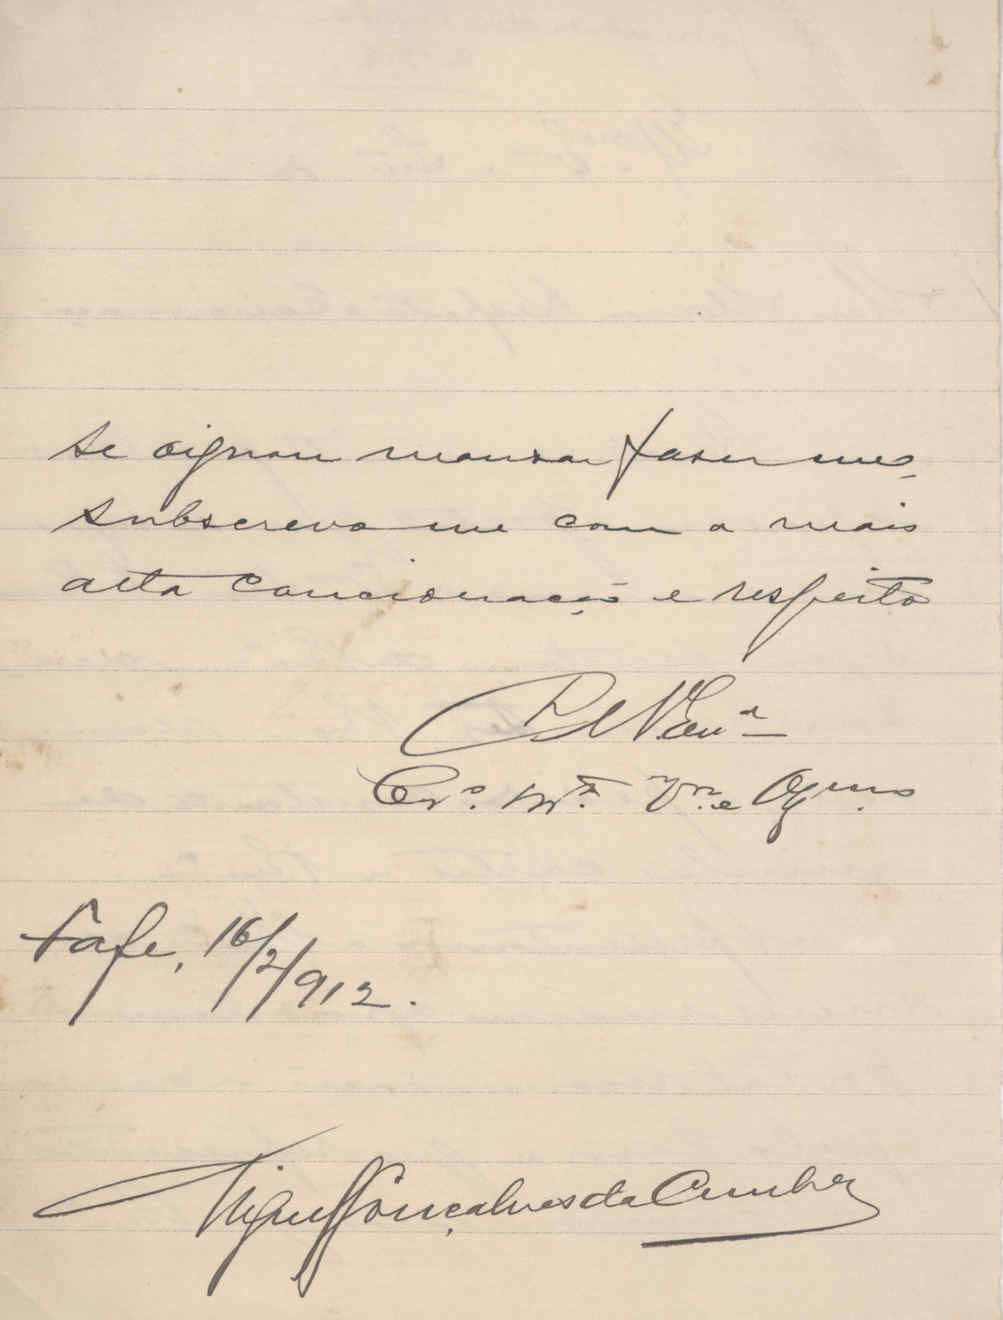 se dignou mandar fazer me,
subscrevo me com a mais
alta concideração e respeito
De V. Ex.ª
Cr.º Mt.º V.or e Obg.mo
Fafe, 16/2/912.
Miguel Gonçalves da Cunha